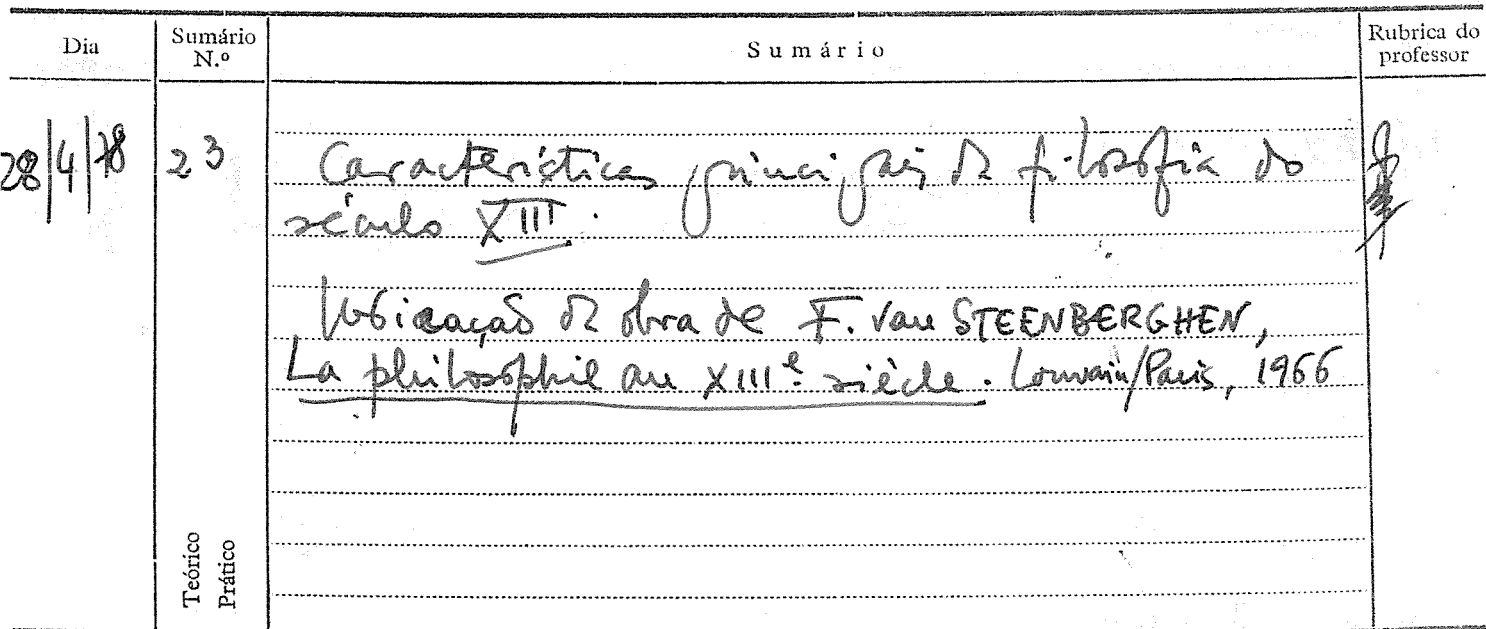 Dia
Sumário N.º
Sumário
Rubrica do professor
28/4/78
23
Características principais da filosofia do
século XIII.
da obra de F. van STEENBERGHEN,
La philosophie au XIIIe siècle. Louvain/Paris, 1966
Teórico
Prático